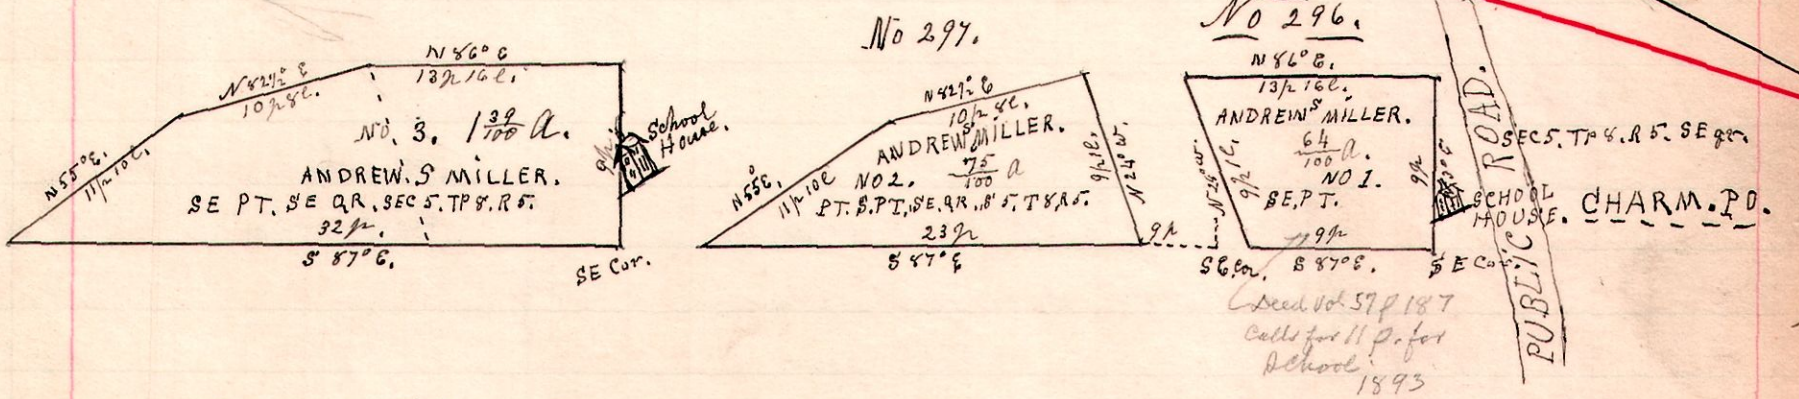 N 86° E
13p 16l.
N 82½° E
10p 8l.
N 55° E.
11p 10l.
NO. 3. 1 39/100 A.
ANDREW. S MILLER.
SE PT. SE QR. SEC 5. TP 8. R 5.
32p.
S 87° E.
9p.
School
House.
SE Cor.
No 297.
N 82½° E
10p 8l.
ANDREW S MILLER.
NO 2. 75/100 A
PT. S. PT. SE. QR. S 5. T 8, R 5.
N 55 E.
11p 10l
23p
S 87° E
9p 1l.
N 24° W.
9p
S E. Cor.
No 296.
N 86° E.
13p 16l.
ANDREW S MILLER.
64/100 A.
NO 1.
SE. PT.
9p 1l.
9p
9p
S 87° E.
S E Cor
SCHOOL
HOUSE.
PUBLIC ROAD.
SEC 5. TP 8. R 5. SE qr.
CHARM. PO.
Deed Vol 57 p 187
Calls for 11 p. for
School
1893